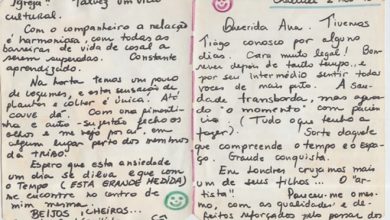 Igreja". Talvez um vício
cultural.
Com o companheiro a relação
é harmoniosa, com todas as
barreiras de vida de casal a
serem superadas. Constante
aprendizado.
Na horta temos um pouco
de legumes, e esta sensação de
plantar e colher é única. Até
couve dá. Com uma pimentinha
e outra sujeitão fecho os
olhos e me vejo por aí, em
algum lugar perto dos membros
da TRIBO.
Espero que esta ansiedade
um dia se dilua e que com
o Tempo (ESTA GRANDE MEDIDA)
me encontre no centro de
mim mesma.
BEIJOS, CHEIROS...
Querida Ana. Tivemos
Tiago conosco por alguns
dias. Cara muito legal! Bom
rever depois de tanto tempo e
por seu intermédio sentir todos
vocês de mais perto. A sau-
dade transborda, mas espao
do "o momento" com paciên-
cia (Tudo o que tenho a
fazer). Sorte daquele
que compreende o tempo e o espa-
ço. Grande conquista.
Em Londres cruzamos mais
um de seus filhos. O "ar-
tista". Pareceu-me o mes-
mo, com as qualidades e de-
feitos reforçados pelo passar do